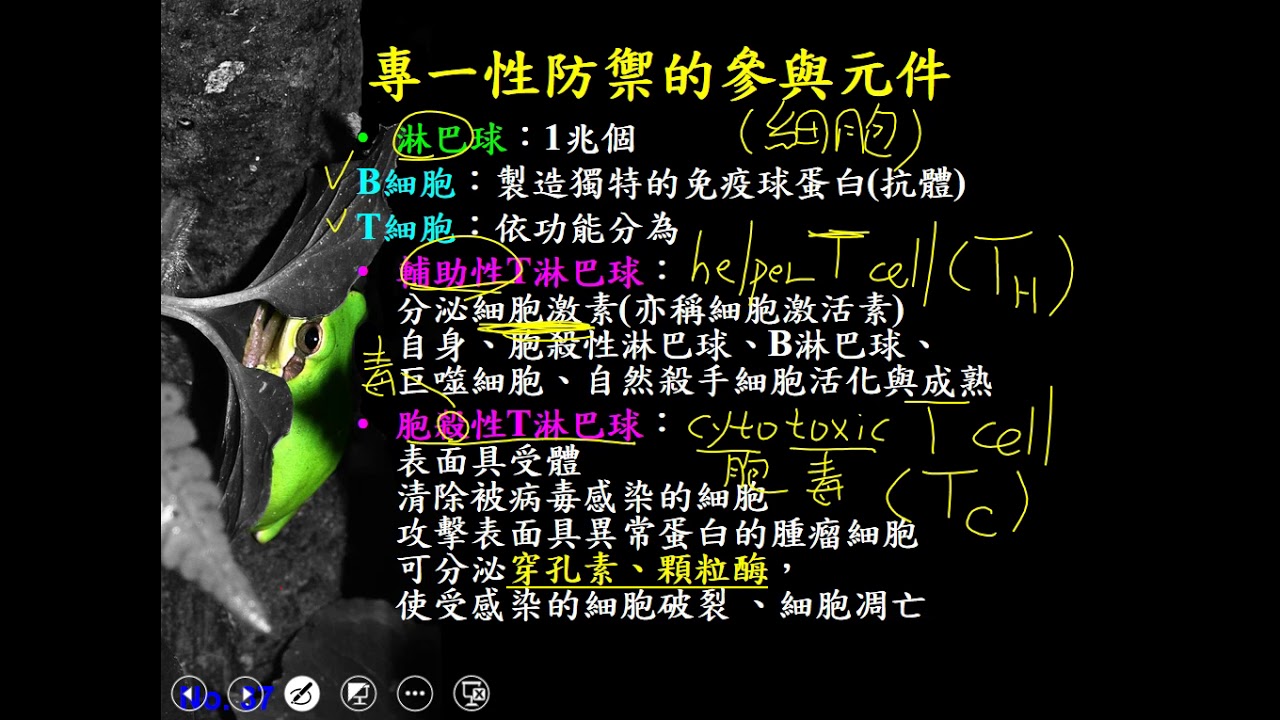 專一性防禦的參與元件
• 淋巴球：1兆個 (細胞)
B細胞：製造獨特的免疫球蛋白(抗體)
T細胞：依功能分為
• 輔助性T淋巴球： helper T cell (TH)
分泌細胞激素(亦稱細胞激活素)
自身、胞殺性淋巴球、B淋巴球、
毒
巨噬細胞、自然殺手細胞活化與成熟
• 胞殺性T淋巴球： cytotoxic T cell
表面具受體 胞 毒 (TC)
清除被病毒感染的細胞
攻擊表面具異常蛋白的腫瘤細胞
可分泌穿孔素、顆粒酶，
使受感染的細胞破裂 、細胞凋亡
No. 37